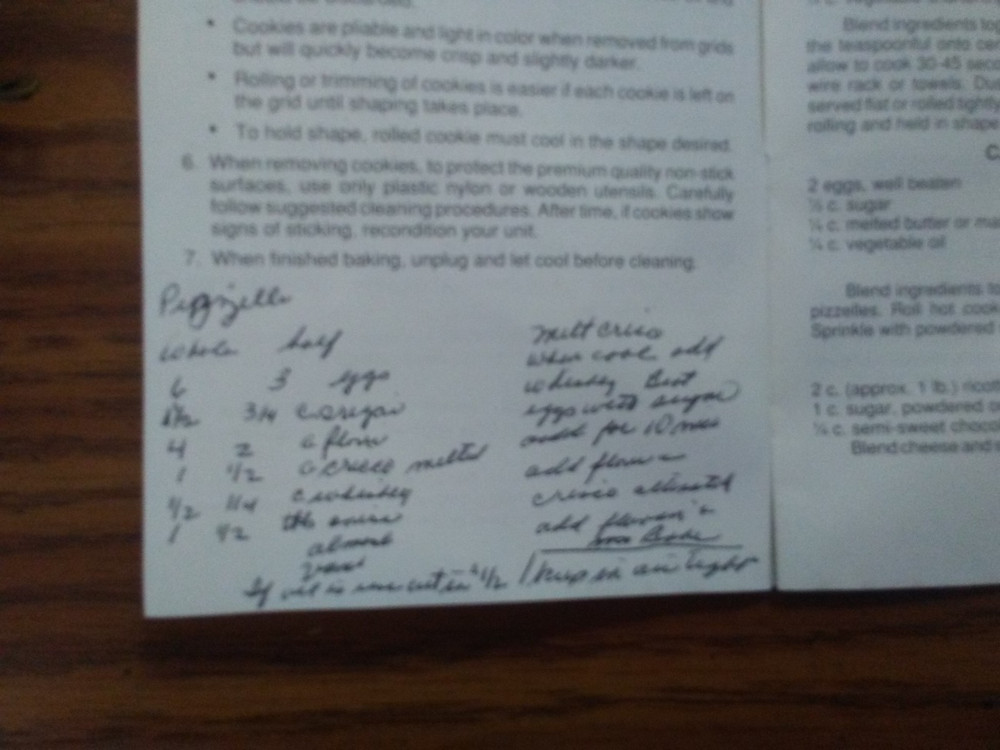 • Cookies are pliable and light in color when removed from grids
but will quickly become crisp and slightly darker.
• Rolling or trimming of cookies is easier if each cookie is left on
the grid until shaping takes place.
• To hold shape, rolled cookie must cool in the shape desired.
6. When removing cookies, to protect the premium quality non-stick
surfaces, use only plastic nylon or wooden utensils. Carefully
follow suggested cleaning procedures. After time, if cookies show
signs of sticking, recondition your unit.
7. When finished baking, unplug and let cool before cleaning.
Pizzelle
whole half
6 3 eggs
1 1/2 3/4 c sugar
4 2 c flour
1 1/2 c crisco melted
1/2 1/4 c whiskey
1 1/2 tbs anise
almond
If oil is use cut in 1/2
melt crisco
when cool add
whiskey Beat
eggs with sugar
add for 10 min
add flour &
crisco
add flavor
keep in air tight
Blend ingredients
the teaspoonful onto
allow to cook 30-45
wire rack or towels.
served flat or rolled tightly
rolling and held in shape
2 eggs, well beaten
c. sugar
¼ c. melted butter or
¼ c. vegetable oil
Blend ingredients
pizzelles. Roll hot
Sprinkle with powdered
2 c. (approx. 1 lb.)
1 c. sugar, powdered
¼ c. semi-sweet
Blend cheese and